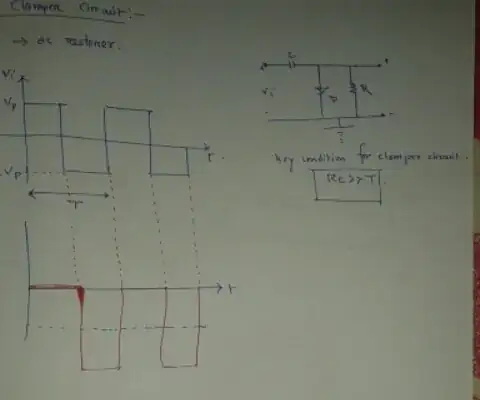 Clamper Circuit:-
→ dc restorer.
Vi
Vp
t
-Vp
T
t
C
+ +
Vi D R
- -
Key condition for clamper circuit.
RC >> T.